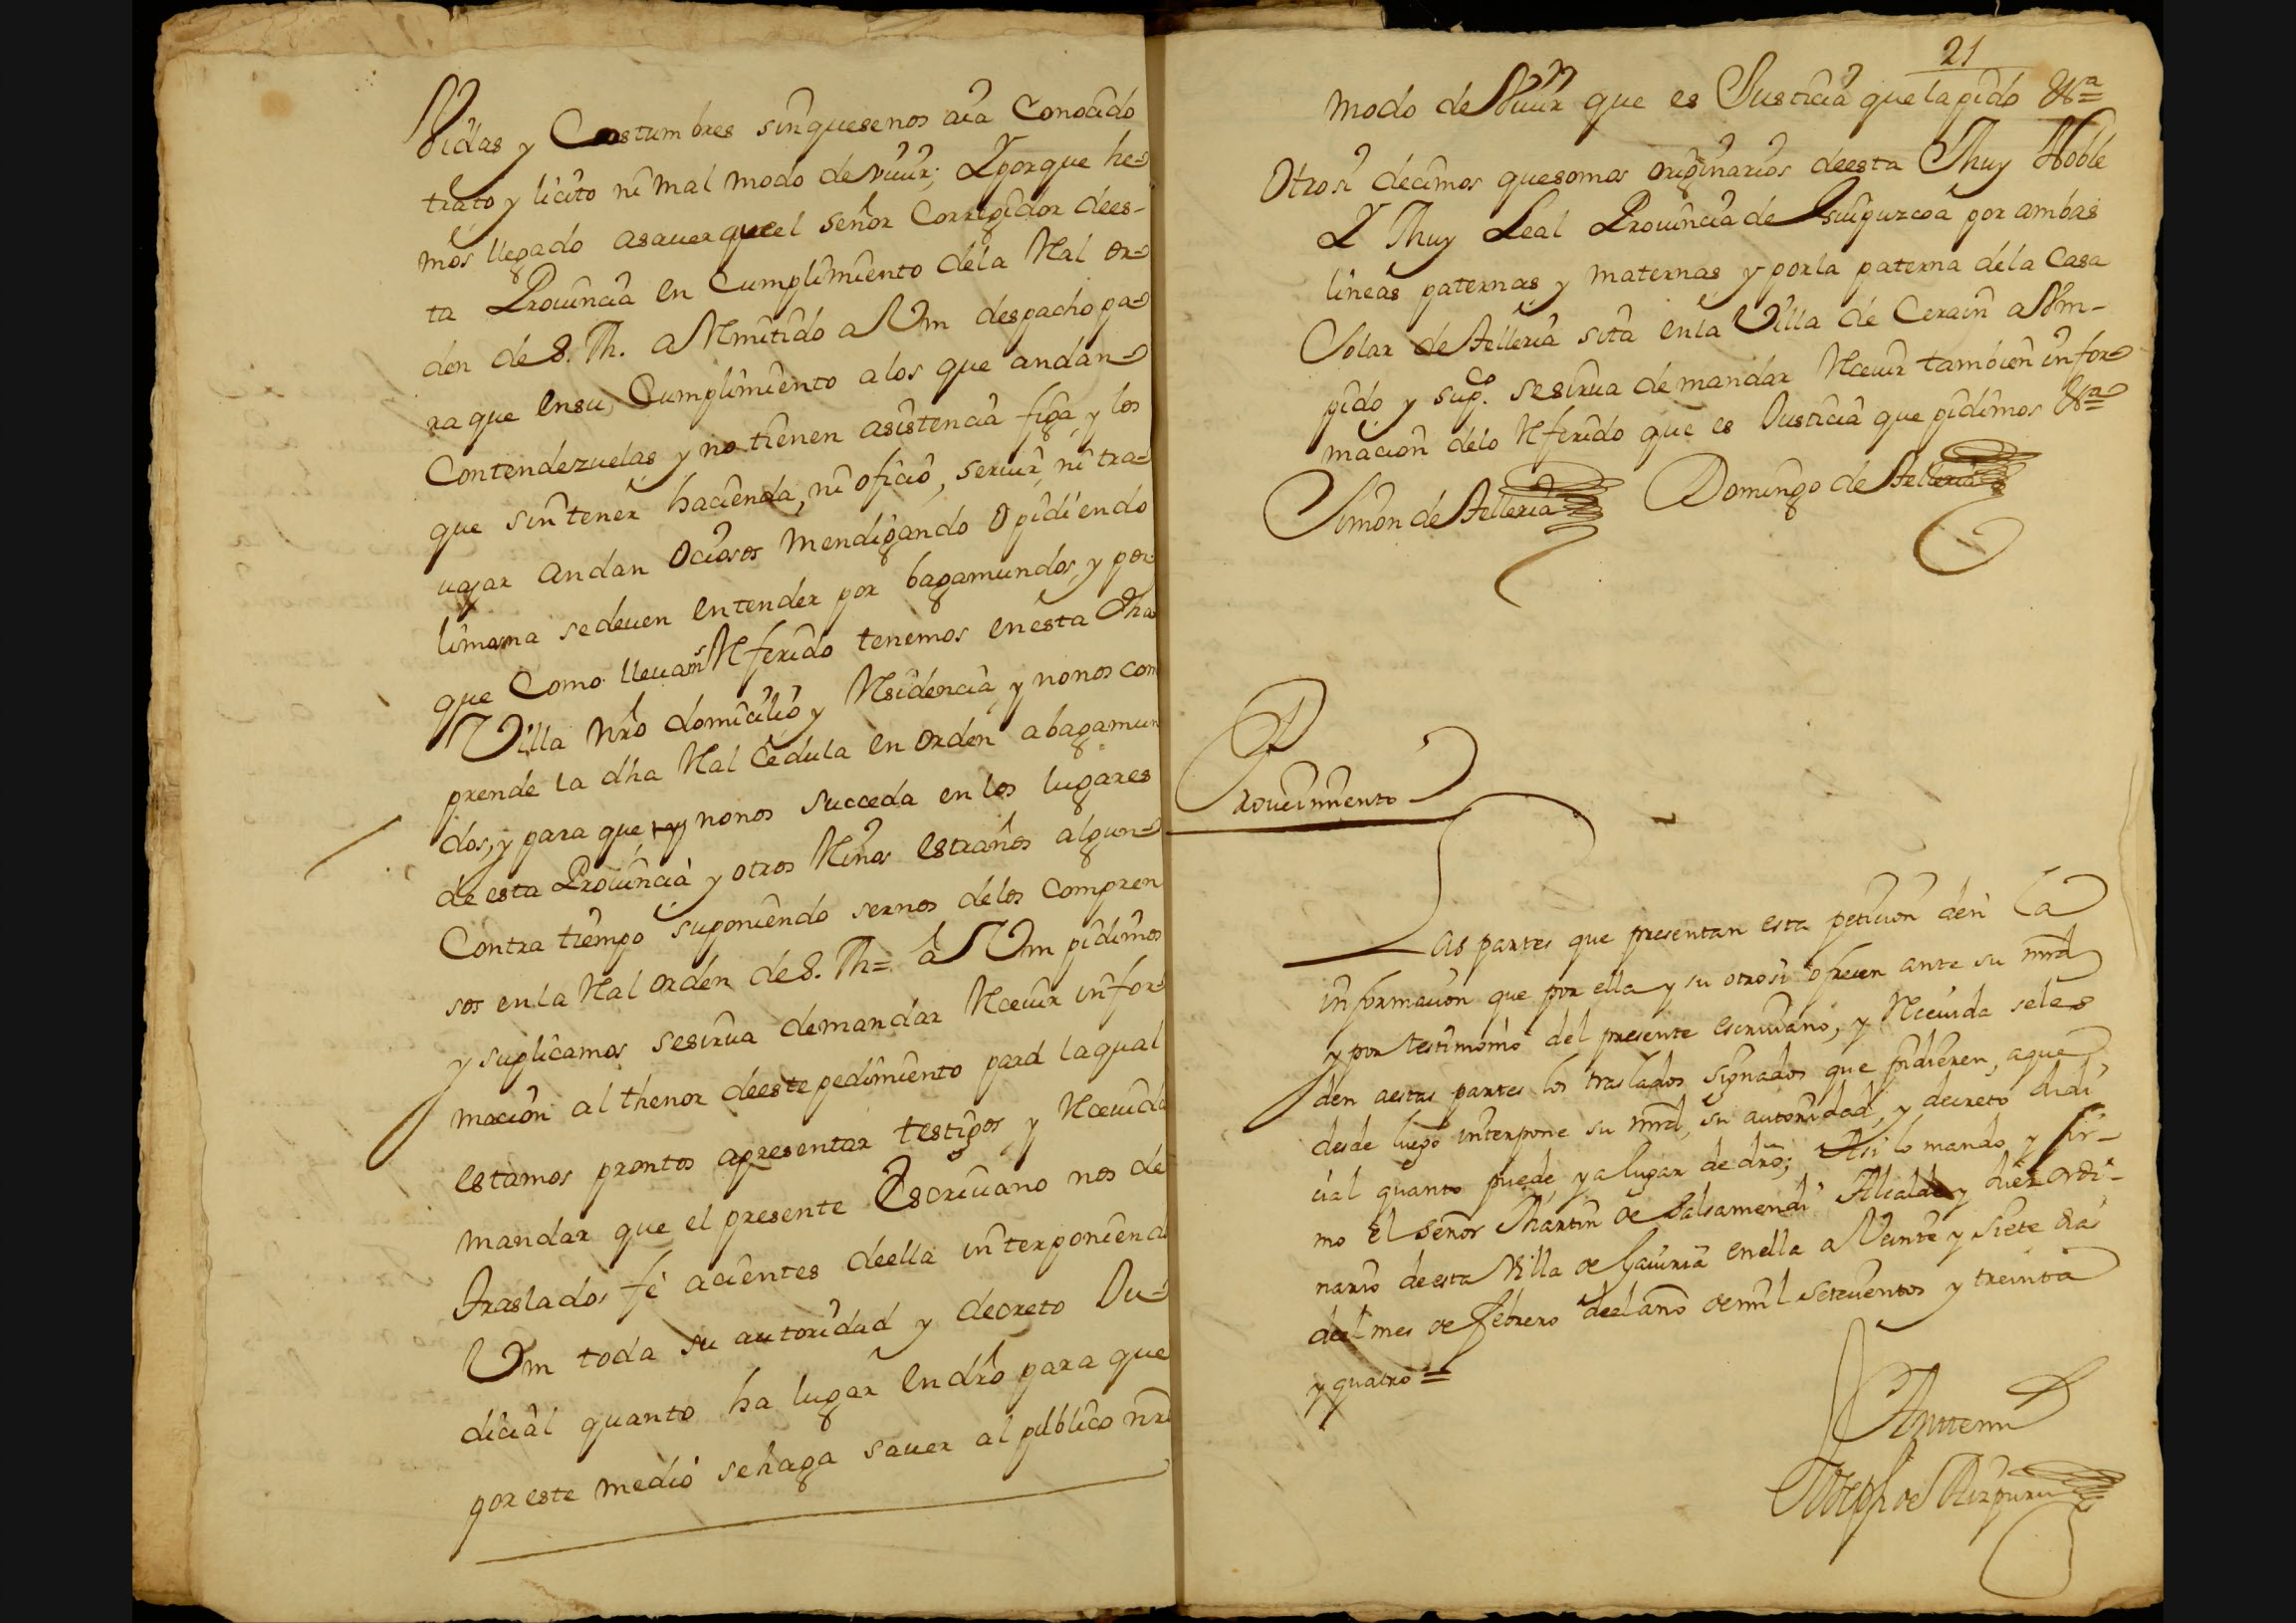 Vidas y Costumbres sinquesenos aia Conocido
trato y licito ni mal modo de viuir; Y porque he-
mos llegado asauer que el señor Corregidor dees-
ta Prouincia en Cumplimiento dela Real or-
den de S. M. a Remitido a Vm despacho pa-
ra que ensu Cumplimiento alos que andan
Contendezuelas y no tienen asistencia fija, y los
que sin tener hacienda, ni oficio, seruir, ni tra-
uajar andan Ociosos mendigando o pidiendo
limosna sedeuen entender por bagamundos, y por
que Como lleuams Referido tenemos enesta dha
Villa nrô domicilio y Residencia, y nonos com
prende la dha Real Cedula en orden abagamun
dos, y para que, nonos succeda en los lugares
de esta Prouincia y otros Reinos estraños algun
Contra tiempo suponiendo sernos delos Compren
sos en la Real orden de S. M= a Vm pidimos
y suplicamos sesirua demandar Receuir infor
macion al thenor deeste pedimiento para laqual
estamos prontos apresentar testigos y Receuida
mandar que el presente Escriuano nos de
traslados fe acientes deella interponiend
Vm toda su autoridad y decreto Ju-
dicial quanto ha lugar en drô para que
por este medio sehaga sauer al publico nrô
21
modo de Viuir que es Justicia que la pido &ra=
Otrosi decimos quesomos originarios deesta Muy Noble
Y Muy Leal Prouincia de Guipuzcoa por ambas
lineas paternas y maternas y por la paterna dela Casa
Solar de Telleria sita en la Villa de Cerain a Vm-
pido y supco. sesirua de mandar Receuir tambien infor-
macion delo Referido que es Justicia que pidimos &ra=
Simon de Telleria Domingo de Telleria
Proueimiento
Las partes que presentan esta peticion den la
informacion que por ella y su otrosi ofrecen ante su mrd
y por testimonio del presente escriuano, y Receuida seles
den aestas partes los traslados signados que pidieren, aque
desde luego interpone su mrd, su autoridad, y decreto Judi
cial quanto puede, y a lugar de drô; Asi lo mando y fir-
mo el Señor Martin de Galsamendi Alcalde y Juez ordi-
nario deesta Villa de Gauiria en ella a Veinte y siete dias
del mes de febrero deel año de mil setecientos y treinta
y quatro=
Antemi
Joseph de Aizpuru